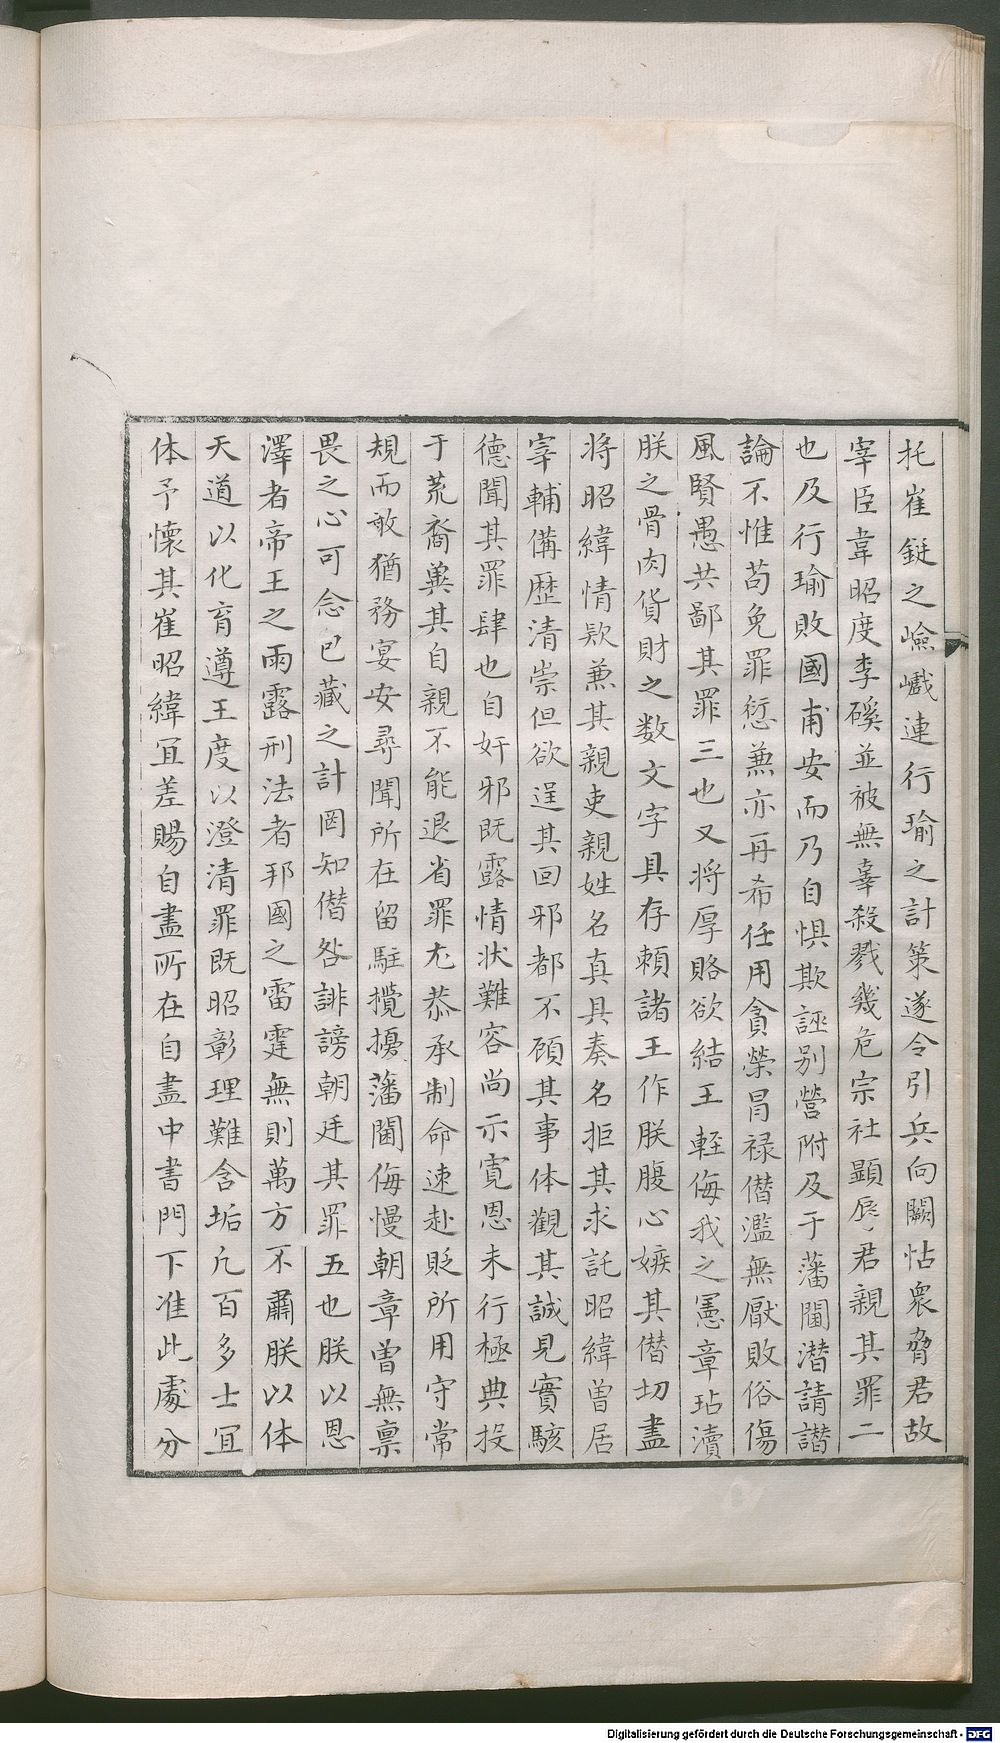 托崔鋋之嶮巇連行瑜之計策遂令引兵向闕怙衆脅君故
宰臣韋昭度李磎並被無辜殺戮幾危宗社顯辱君親其罪二
也及行瑜敗國甫安而乃自惧欺誣别營附及于藩閫潜請譖
論不惟苟免罪愆兼亦再希任用貪榮冒禄僭濫無厭敗俗傷
風賢愚共鄙其罪三也又将厚賂欲結王輕侮我之憲章玷瀆
朕之骨肉貨財之数文字具存頼諸王作朕腹心嫉其僭切盡
将昭緯情欵兼其親吏親姓名真具奏名拒其求託昭緯曽居
宰輔備歴清崇但欲逞其回邪都不顧其事体觀其誠見實駭
德聞其罪肆也自奸邪既露情状難容尚示寛恩未行極典投
于荒裔冀其自親不能退省罪尤恭承制命速赴貶所用守常
規而敢猶務宴安尋聞所在留駐攪擾藩閫侮慢朝章曽無禀
畏之心可念已藏之計罔知僭咎誹謗朝廷其罪五也朕以恩
澤者帝王之雨露刑法者邦國之雷霆無則萬方不肅朕以体
天道以化育遵王度以澄清罪既昭彰理難含垢凢百多士宜
体予懷其崔昭緯宜差賜自盡所在自盡中書門下准此處分
Digitalisierung gefördert durch die Deutsche Forschungsgemeinschaft - DFG